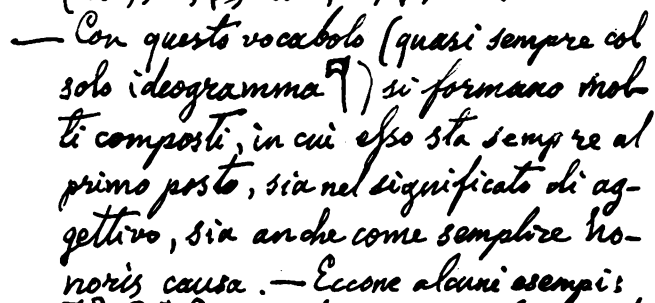 — Con questo vocabolo (quasi sempre col
solo ideogramma 𓊹) si formano mol-
ti composti, in cui esso sta sempre al
primo posto, sia nel significato di ag-
gettivo, sia anche come semplice ho-
noris causa. — Eccone alcuni esempi: